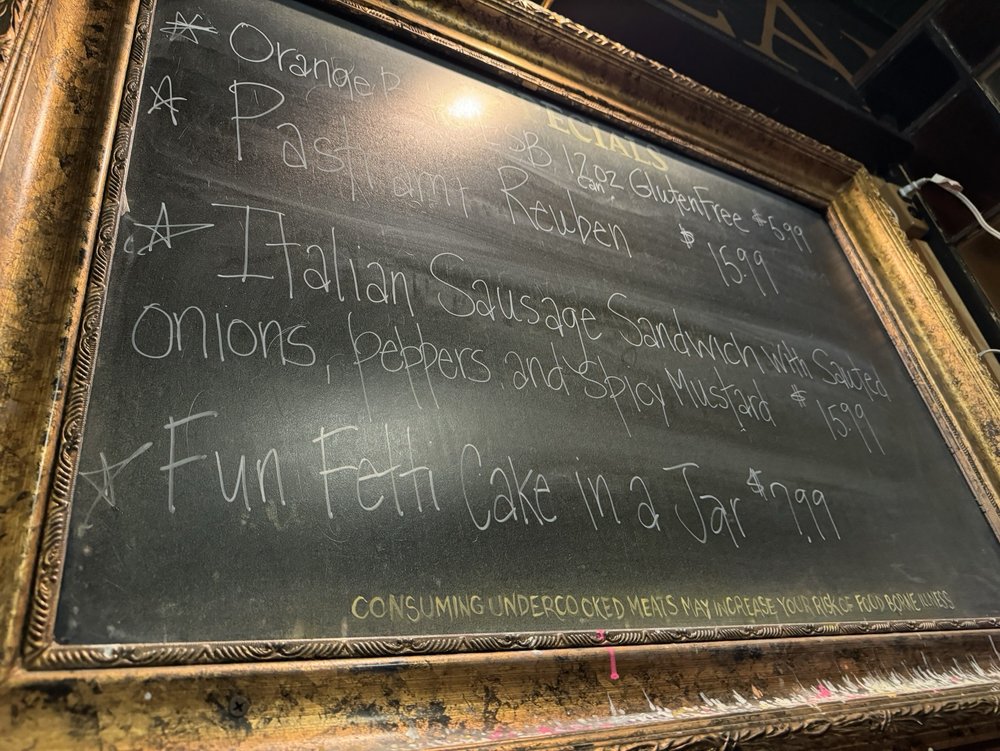 ECIALS
☆ Orange P ESB 12oz can Gluten Free $5.99
☆ Pastrami Reuben $15.99
☆ Italian Sausage Sandwich with Sauteed
onions, peppers, and spicy Mustard $15.99
☆ Fun Fetti Cake in a Jar $7.99
CONSUMING UNDERCOCKED MEATS MAY INCREASE YOUR RISK OF FOOD BORNE ILLNESS